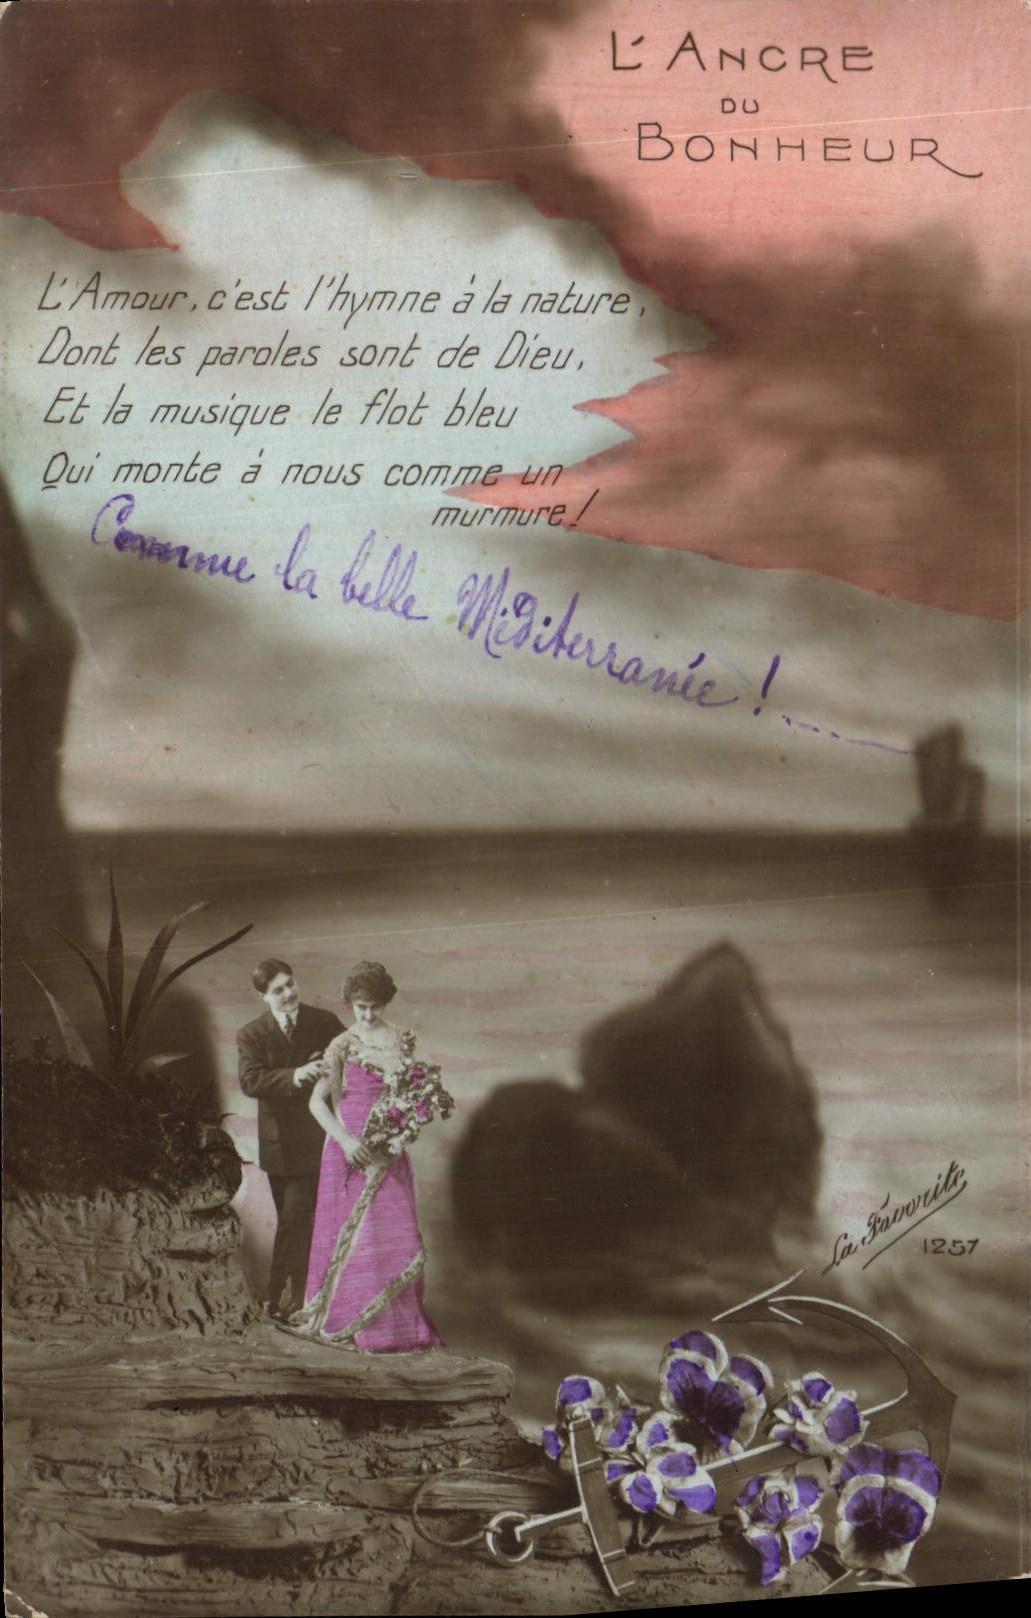 L'ANCRE
DU
BONHEUR
L'Amour, c'est l'hymne à la nature,
Dont les paroles sont de Dieu,
Et la musique le flot bleu
Qui monte à nous comme un
murmure!
Comme la belle Méditerranée!
La Favorite
1257